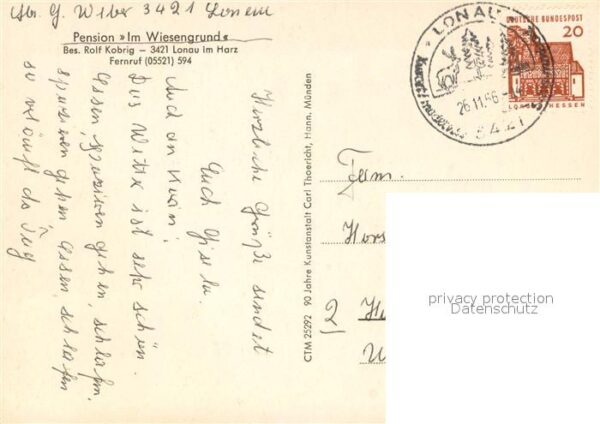 Abs. G. Weber 3421 Lonau
Pension »Im Wiesengrund«
Bes. Rolf Kobrig — 3421 Lonau im Harz
Fernruf (05521) 594
Herzliche Grüße sendet
Euch Gisela.
Und an Karin!
Das Wetter ist sehr schön.
Essen, spazieren gehen, schlafen,
spazieren gehen, essen, schlafen
so verläuft do Tag
CTM 25292 90 Jahre Kunstanstalt Carl Thoericht, Hann. Münden
LONAU
26.11.66
3421
DEUTSCHE BUNDESPOST
20
LORSCH/HESSEN
Fam.
Hors
2 H
privacy protection
Datenschutz